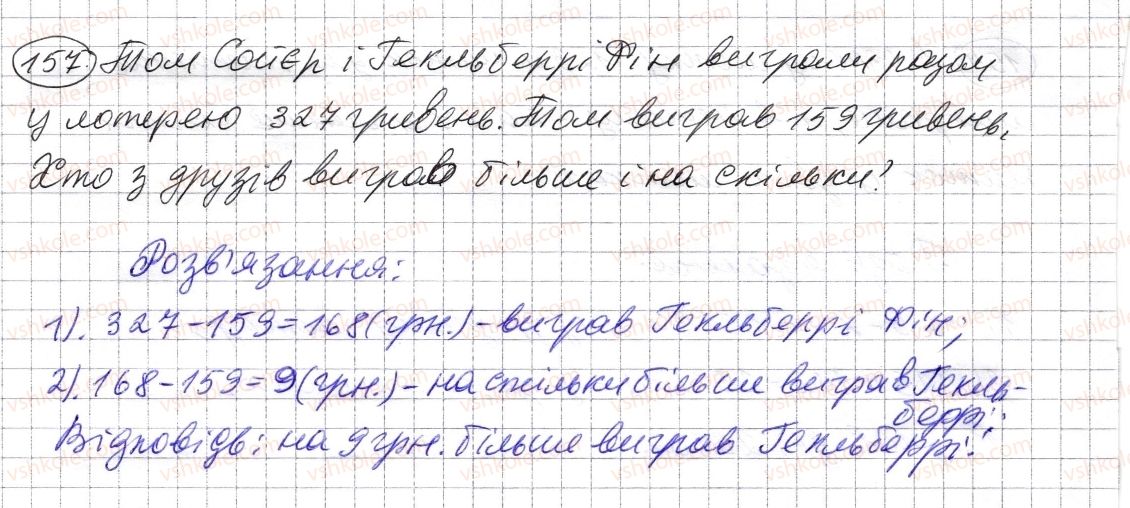 157 Том Сойєр і Гекльберрі Фін виграли разом
у лотерею 327 гривень. Том виграв 159 гривень.
Хто з друзів виграв більше і на скільки?
Розв'язання:
1). 327-159=168(грн.) - виграв Гекльберрі Фін;
2). 168-159=9(грн.) - на стільки більше виграв Гекль-
беррі;
Відповідь: на 9 грн. більше виграв Гекльберрі.